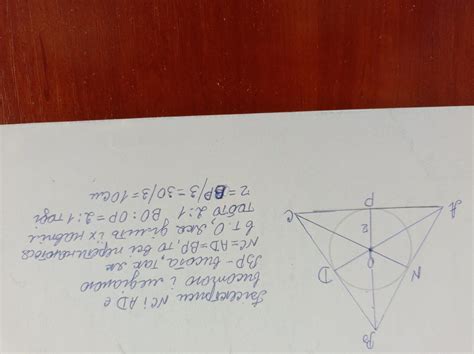 Бісектриси NC і AD є
висотою і медіаною
BP - висота, так як
NC = AD = BP, то всі перетинаються
в т. O, яка ділить їх навпіл
тобто 2:1 BO : OP = 2:1 тоді
r = BP/3 = 30/3 = 10 см
B
N
D
O
r
A
P
C